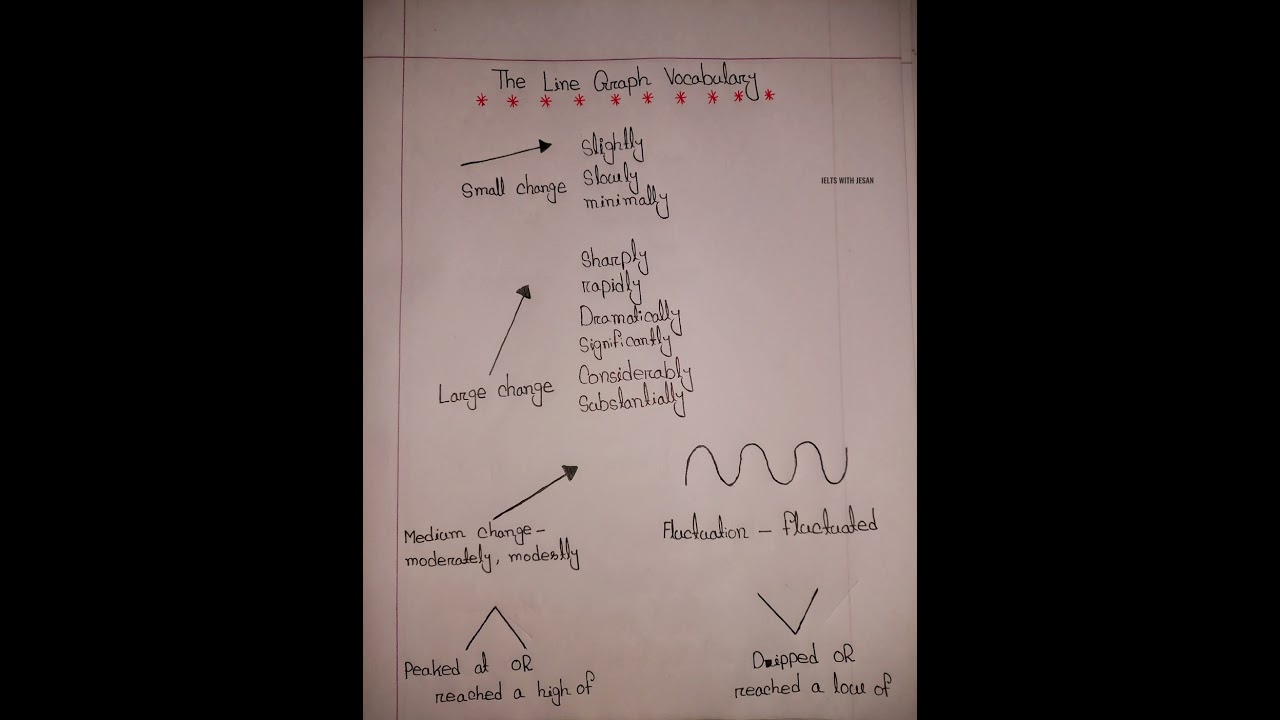 The Line Graph Vocabulary
* * * * * * * * * *
Slightly
Slowly
minimally
Small change
IELTS WITH JESAN
Sharply
rapidly
Dramatically
Significantly
Considerably
Substantially
Large change
Medium change -
moderately, modestly
Fluctuation - fluctuated
Peaked at OR
reached a high of
Dipped OR
reached a low of